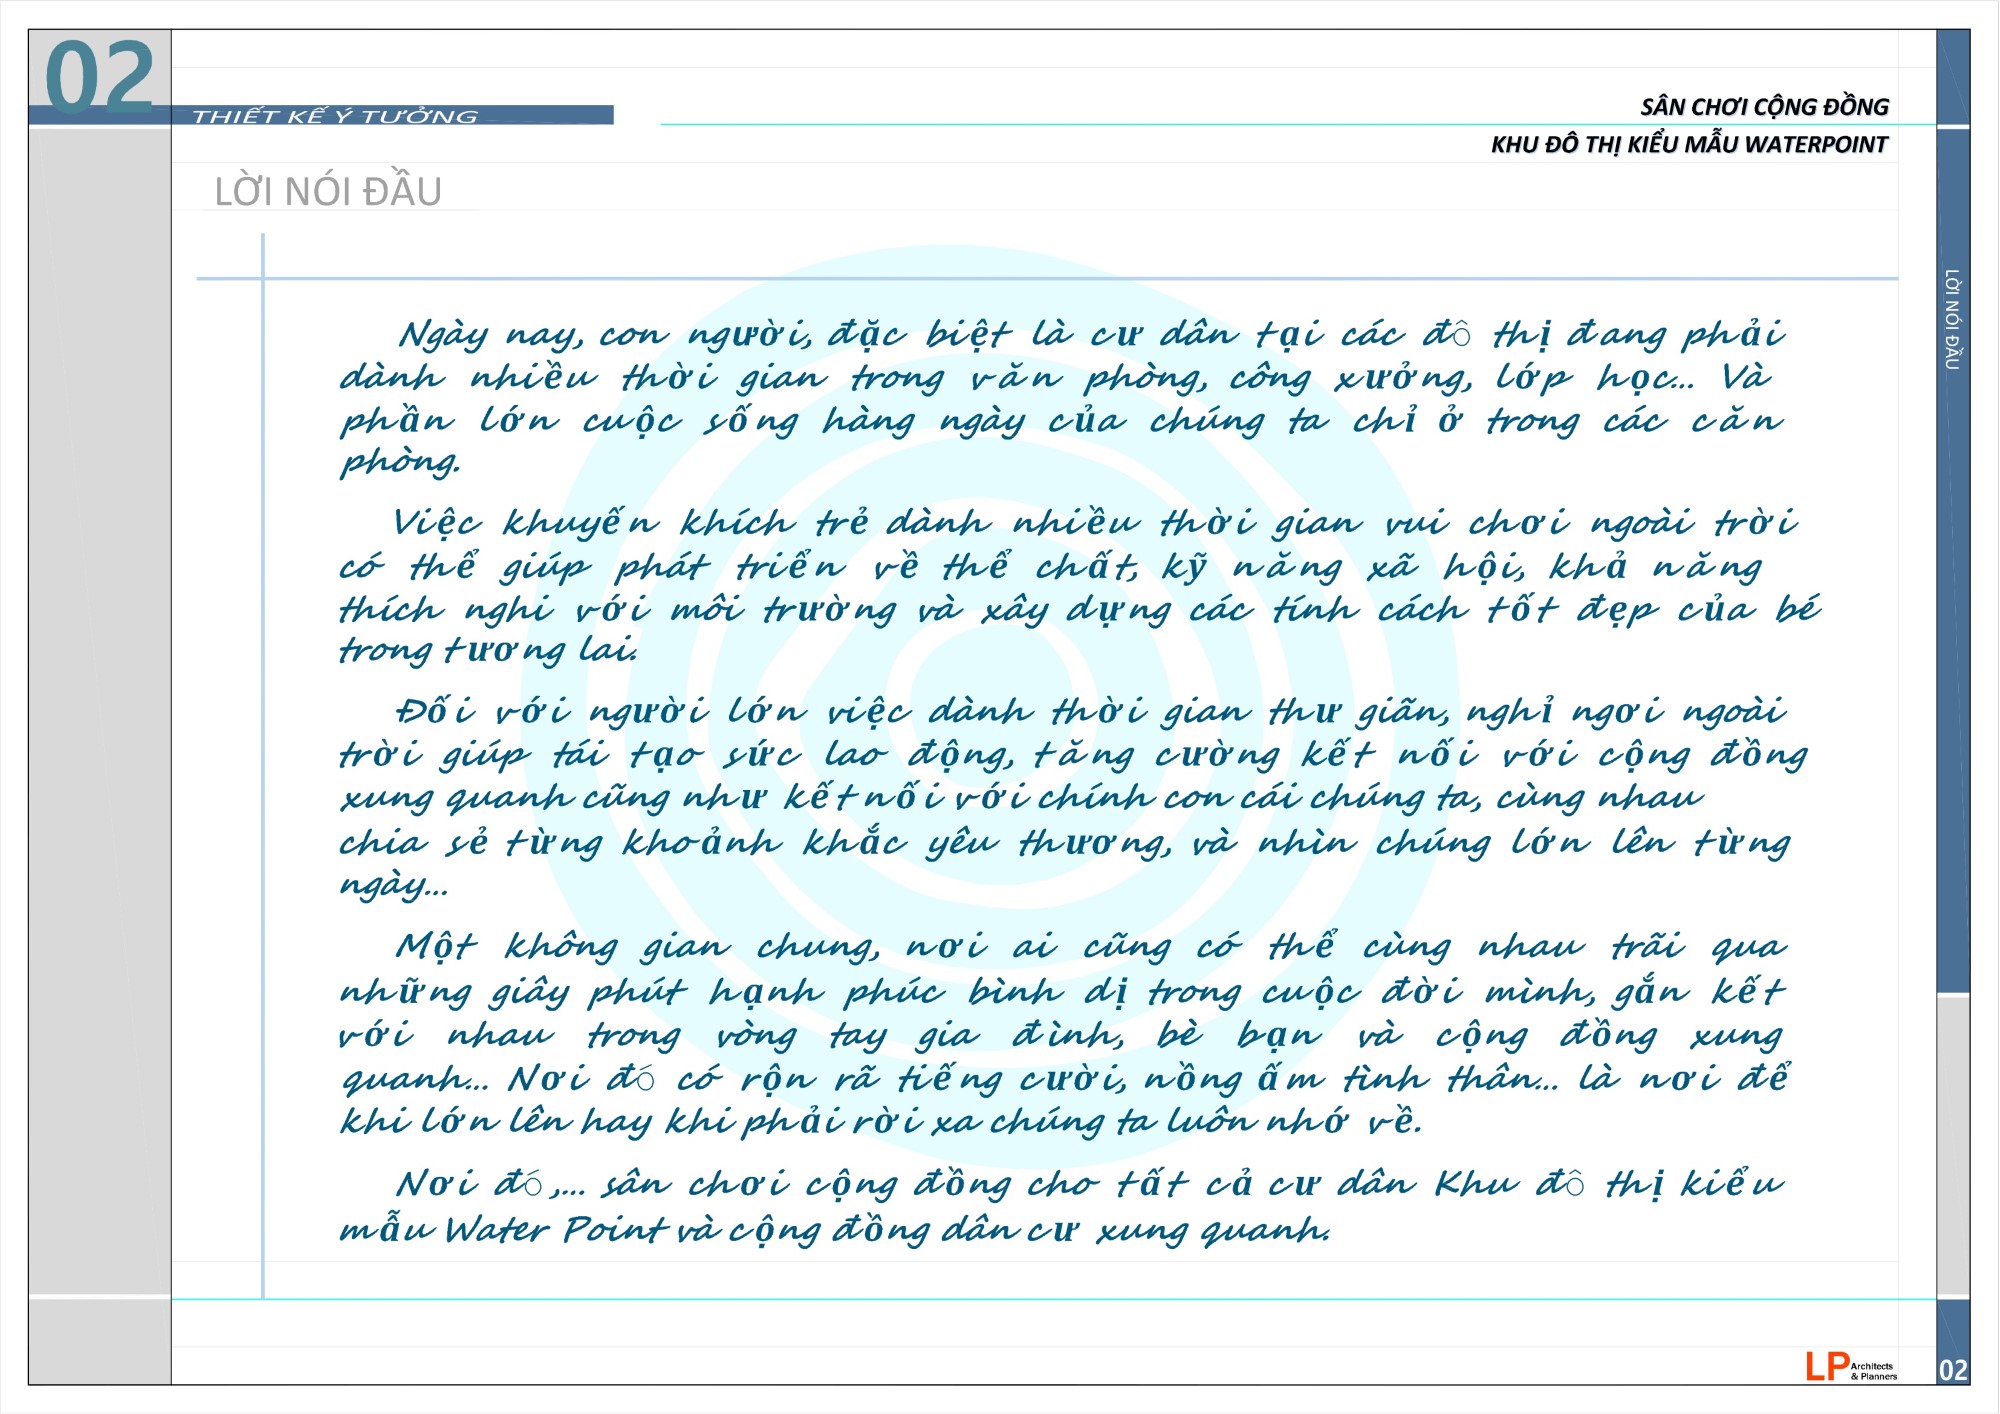 02
THIẾT KẾ Ý TƯỞNG
SÂN CHƠI CỘNG ĐỒNG
KHU ĐÔ THỊ KIỂU MẪU WATERPOINT
LỜI NÓI ĐẦU
Ngày nay, con người, đặc biệt là cư dân tại các đô thị đang phải
dành nhiều thời gian trong văn phòng, công xưởng, lớp học... Và
phần lớn cuộc sống hàng ngày của chúng ta chỉ ở trong các căn
phòng.
Việc khuyến khích trẻ dành nhiều thời gian vui chơi ngoài trời
có thể giúp phát triển về thể chất, kỹ năng xã hội, khả năng
thích nghi với môi trường và xây dựng các tính cách tốt đẹp của bé
trong tương lai.
Đối với người lớn việc dành thời gian thư giãn, nghỉ ngơi ngoài
trời giúp tái tạo sức lao động, tăng cường kết nối với cộng đồng
xung quanh cũng như kết nối với chính con cái chúng ta, cùng nhau
chia sẻ từng khoảnh khắc yêu thương, và nhìn chúng lớn lên từng
ngày...
Một không gian chung, nơi ai cũng có thể cùng nhau trãi qua
những giây phút hạnh phúc bình dị trong cuộc đời mình, gắn kết
với nhau trong vòng tay gia đình, bè bạn và cộng đồng xung
quanh... Nơi đó có rộn rã tiếng cười, nồng ấm tình thân... là nơi để
khi lớn lên hay khi phải rời xa chúng ta luôn nhớ về.
Nơi đó,... sân chơi cộng đồng cho tất cả cư dân Khu đô thị kiểu
mẫu Water Point và cộng đồng dân cư xung quanh.
LỜI NÓI ĐẦU
LP Architects
& Planners
02